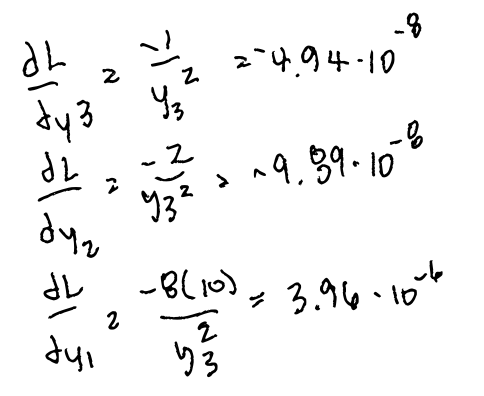 dL/dy3 = -1/y₃² = -4.94·10⁻⁸
dL/dy₂ = -2/y₃² = -9.89·10⁻⁸
dL/dy₁ = -8(10)/y₃² = 3.96·10⁻⁶